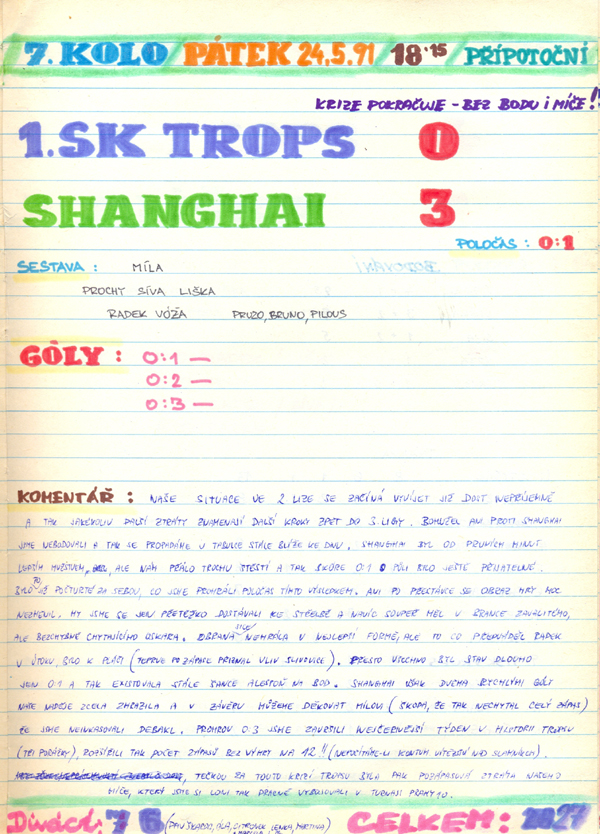 7. KOLO / PÁTEK 24.5.91 / 18 15 / PŘÍPOTOČNÍ
KRIZE POKRAČUJE - BEZ BODU I MÍČE!!
1.SK TROPS 0
SHANGHAI 3
POLOČAS : 0:1
SESTAVA : MÍLA
PROCHY SÍVA LIŠKA
RADEK VÓŽA PRUZO, BRUNO, PILOUS
GÓLY : 0:1 —
0:2 —
0:3 —
KOMENTÁŘ : NAŠE SITUACE VE 2 LIZE SE ZAČÍNÁ VYVÍJET JIŽ DOST NEPŘÍJEMNĚ
A TAK JAKÉKOLIV DALŠÍ ZTRÁTY ZNAMENAJÍ DALŠÍ KROKY ZPĚT DO 3. LIGY. BOHUŽEL ANI PROTI SHANGHAI
JSME NEBODOVALI A TAK SE PROPADÁME V TABULCE STÁLE BLÍŽE KE DNU. SHANGHAI BYL OD PRVNÍCH MINUT
LEPŠÍM MUŽSTVEM, ALE NÁM PŘÁLO TROCHU ŠTĚSTÍ A TAK SKÓRE 0:1 O PŮLI BYLO JEŠTĚ PŘIJATELNÉ.
BYLO TO JIŽ POČTVRTÉ ZA SEBOU, CO JSME PROHRÁLI POLOČAS TÍMTO VÝSLEDKEM. ANI PO PŘESTÁVCE SE OBRAZ HRY MOC
NEZMĚNIL. MY JSME SE JEN PŘETĚŽKO DOSTÁVALI KE STŘELBĚ A NAVÍC SOUPEŘ MĚL V BRANCE ZAVALITÉHO,
ALE BEZCHYBNĚ CHYTAJÍCÍHO OSKARA. OBRANA SICE NEHRÁLA V NEJLEPŠÍ FORMĚ, ALE TO CO PŘEDVÁDĚL RADEK
V ÚTOKU, BYLO K PLÁČI (TEPRVE PO ZÁPASE PŘIZNAL VLIV SLIVOVICE). PŘESTO VŠECHNO BYL STAV DLOUHO
JEN 0:1 A TAK EXISTOVALA STÁLE ŠANCE ALESPOŇ NA BOD. SHANGHAI VŠAK DVĚMA RYCHLÝMI GÓLY
NAŠE NADĚJE ZCELA ZHASILA A V ZÁVĚRU MŮŽEME DĚKOVAT MÍLOVI (ŠKODA, ŽE TAK NECHYTAL CELÝ ZÁPAS)
ŽE JSME NEINKASOVALI DEBAKL. PROHROU 0:3 JSME ZAVRŠILI NEJČERNĚJŠÍ TÝDEN V HISTORII TROPSU
(TŘI PORÁŽKY), ROZŠÍŘILI TAK POČET ZÁPASŮ BEZ VÝHRY NA 12!! (NEPOČÍTÁME-LI KONTUM. VÍTĚZSTVÍ NAD SLAMNÍKEM).
TEČKOU ZA TOUTO KRIZÍ TROPSU BYLA PAK POZÁPASOVÁ ZTRÁTA NAŠEHO
MÍČE, KTERÝ JSME SI LONI TAK PRACNĚ VYBOJOVALI V TURNAJI PRAHY 10.
Diváci: 76 (CITRONEK LENKA, MARTINA) CELKEM: 2027